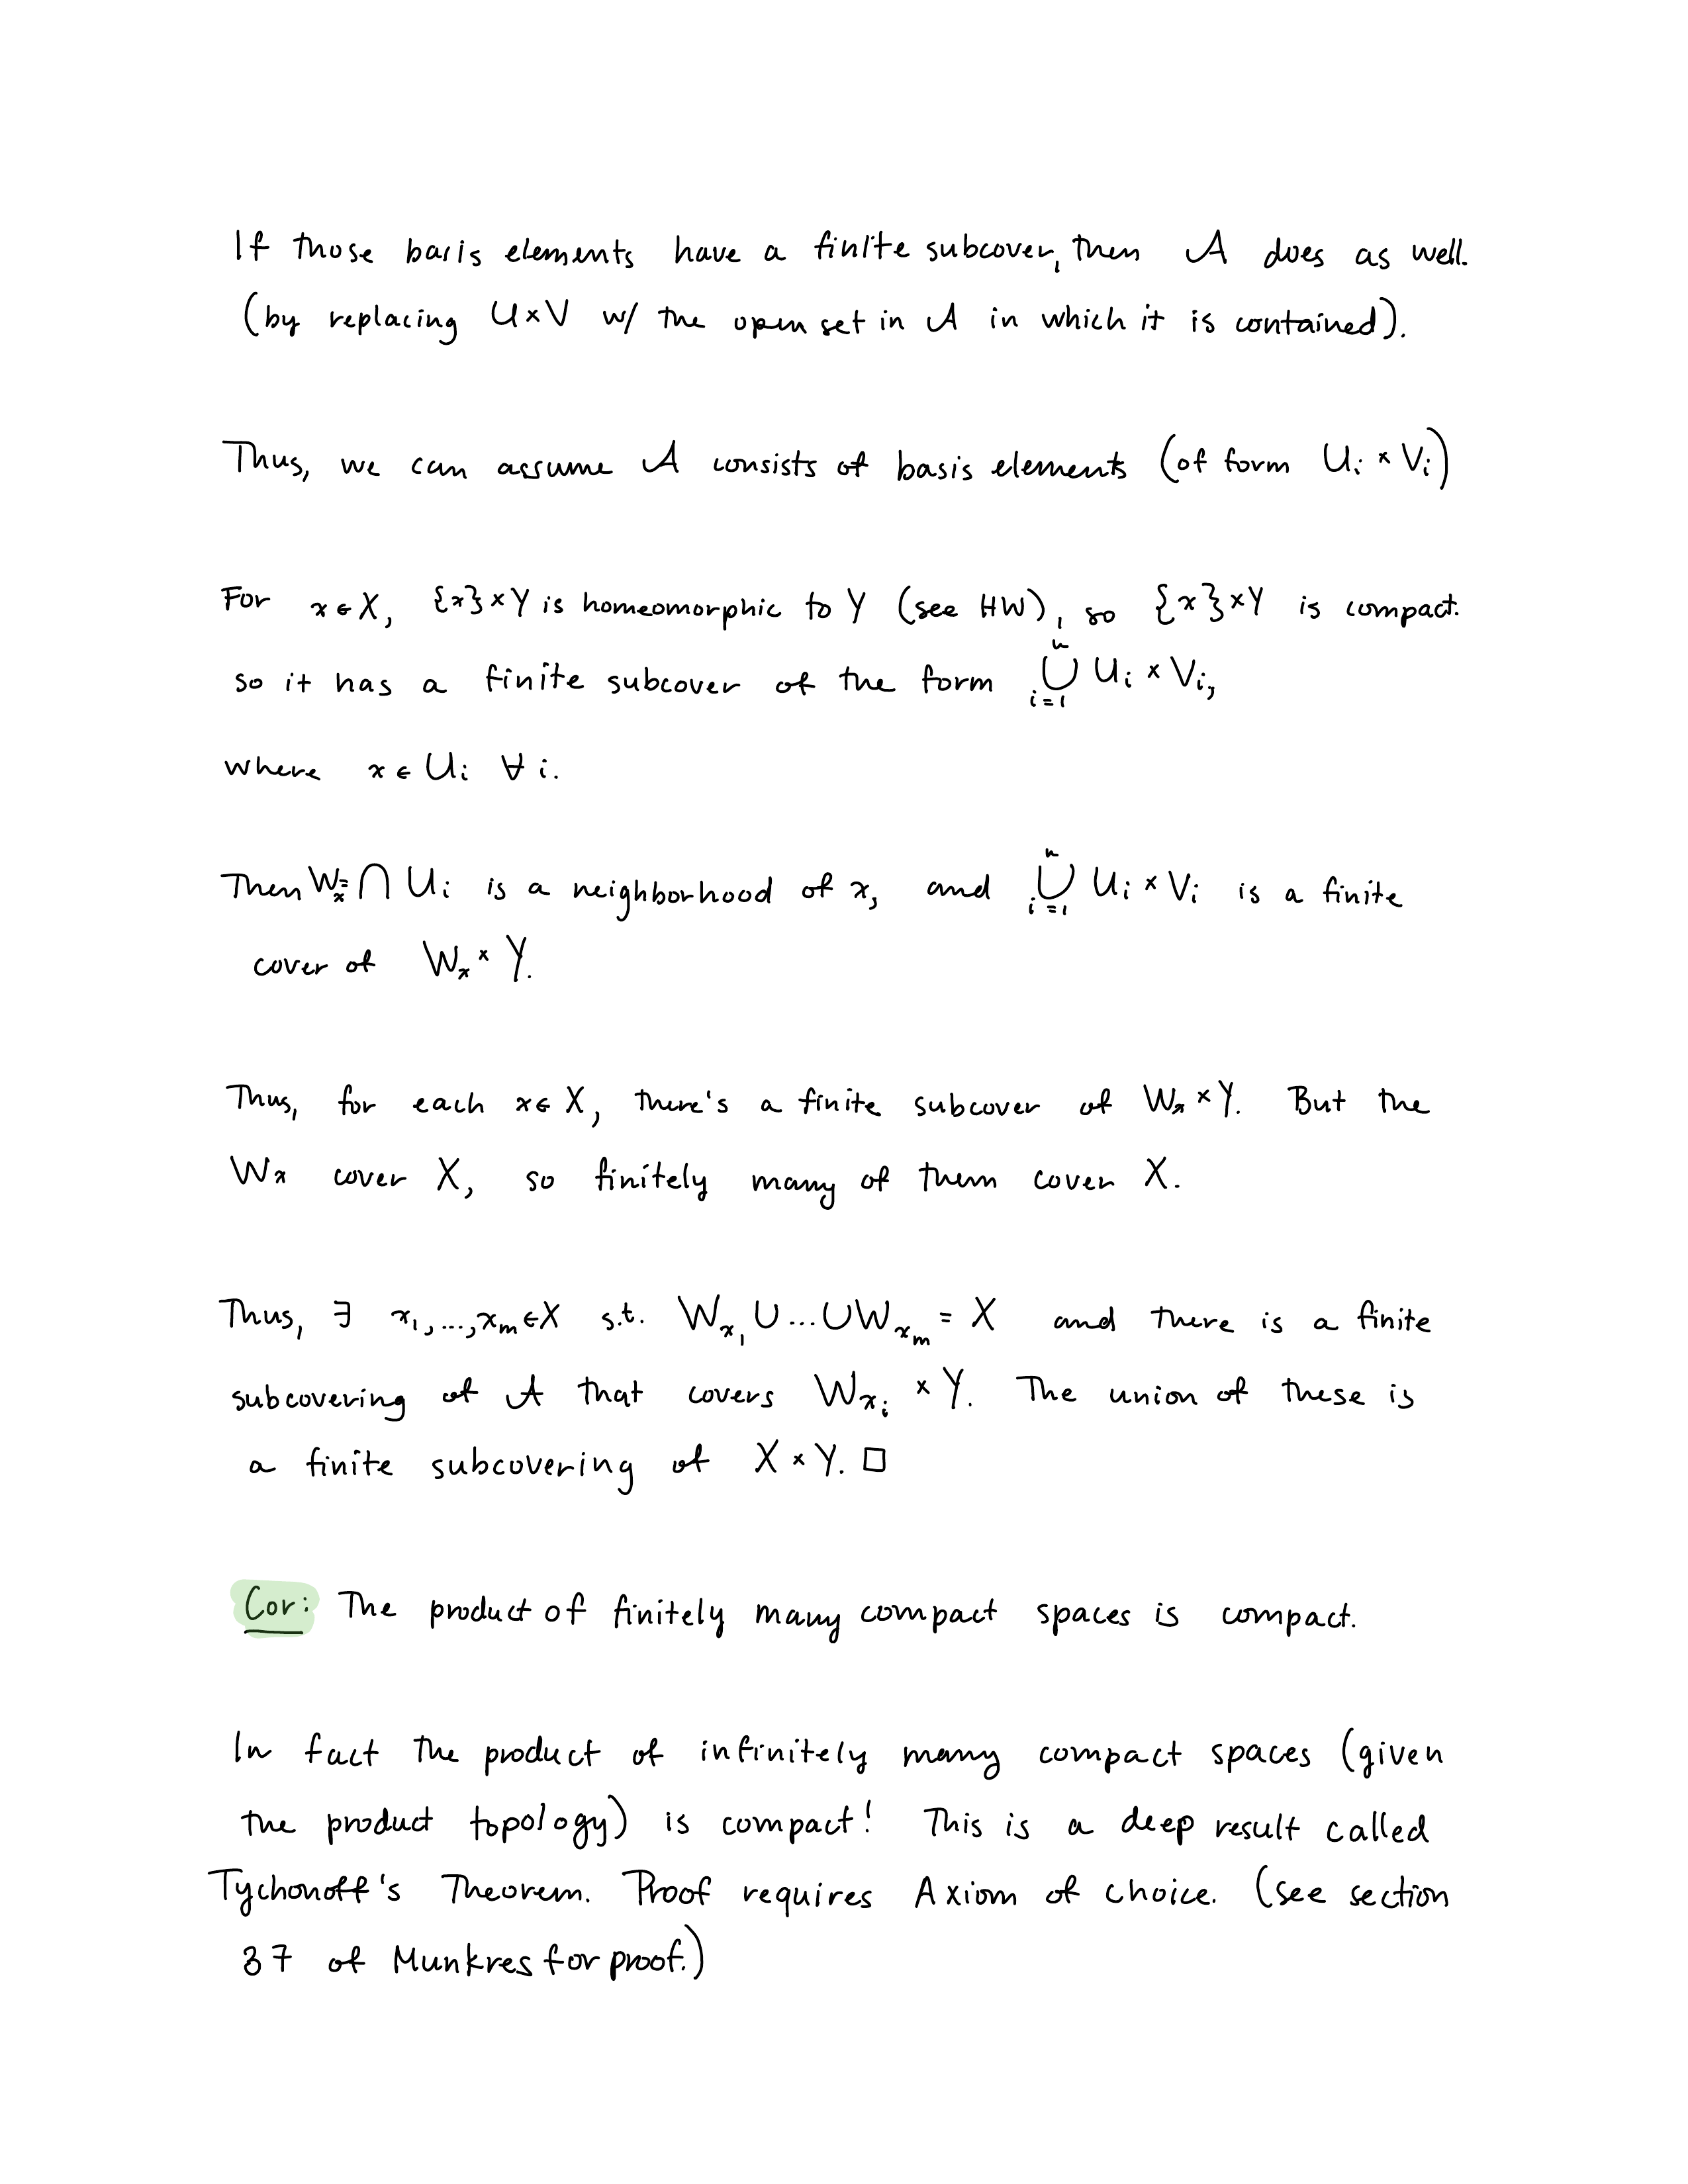 If those basis elements have a finite subcover, then 𝒜 does as well.
(by replacing U×V w/ the open set in 𝒜 in which it is contained).
Thus, we can assume 𝒜 consists of basis elements (of form Uᵢ × Vᵢ)
For x ∈ X, {x}×Y is homeomorphic to Y (see HW), so {x}×Y is compact.
so it has a finite subcover of the form ⋃ᵢ₌₁ⁿ Uᵢ × Vᵢ,
where x ∈ Uᵢ ∀ i.
Then Wₓ = ⋂ Uᵢ is a neighborhood of x, and ⋃ᵢ₌₁ⁿ Uᵢ × Vᵢ is a finite
cover of Wₓ × Y.
Thus, for each x ∈ X, there's a finite subcover of Wₓ × Y. But the
Wₓ cover X, so finitely many of them cover X.
Thus, ∃ x₁,...,xₘ ∈ X s.t. W_{x₁} ∪ ... ∪ W_{xₘ} = X and there is a finite
subcovering of 𝒜 that covers W_{xᵢ} × Y. The union of these is
a finite subcovering of X × Y. □
Cor: The product of finitely many compact spaces is compact.
In fact the product of infinitely many compact spaces (given
the product topology) is compact! This is a deep result called
Tychonoff's Theorem. Proof requires Axiom of choice. (see section
37 of Munkres for proof.)